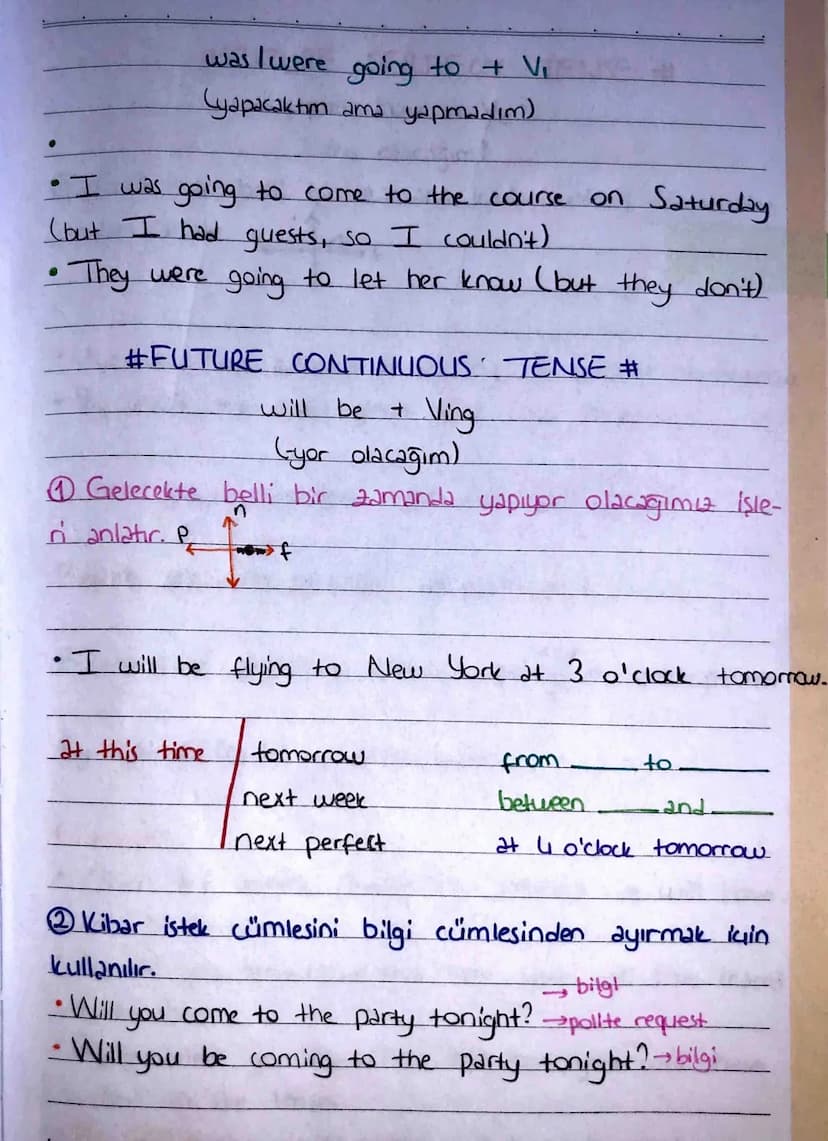 was/were going to + V₁
(yapacaktım ama yapmadım)
• I was going to come to the course on Saturday
(but I had guests, so I couldn't)
• They were going to let her know (but they don't)
#FUTURE CONTINUOUS TENSE #
will be + Ving
(-yor olacağım)
① Gelecekte belli bir zamanda yapıyor olacağımız işle-
ri anlatır.
n
p f
• I will be flying to New York at 3 o'clock tomorrow.
at this time tomorrow from ____ to ____
next week between ____ and ____
next perfect at 4 o'clock tomorrow
② Kibar istek cümlesini bilgi cümlesinden ayırmak için
kullanılır.
→ bilgi
• Will you come to the party tonight? →polite request
• Will you be coming to the party tonight? →bilgi